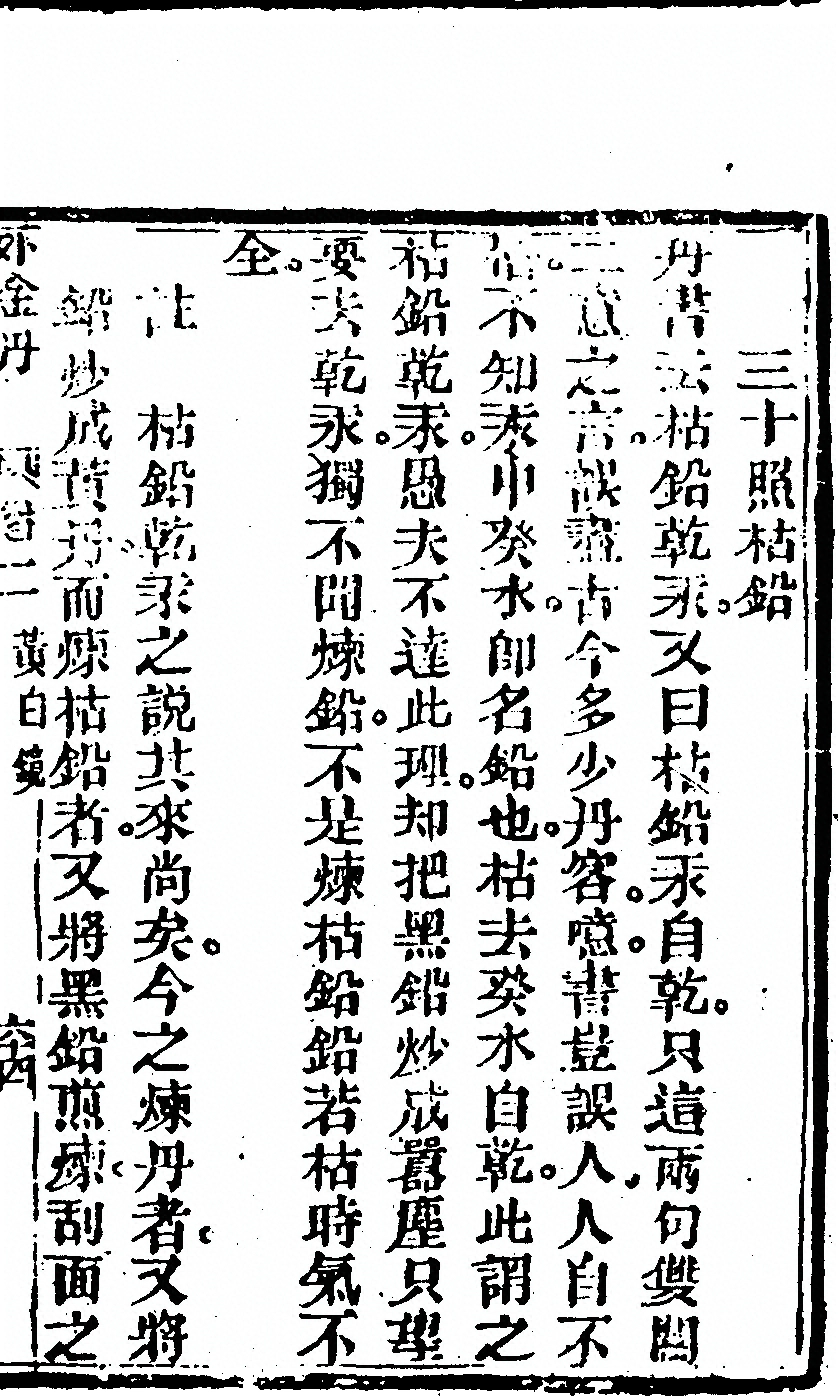 三十照枯鉛
丹書云枯鉛乾汞。又曰枯鉛汞自乾。只這兩句雙關
二意之言。誤盡古今多少丹客。噫。書豈誤人。人自不
悟。不知汞中癸水。卽名鉛也。枯去癸水自乾。此謂之
枯鉛乾汞。愚夫不達此理。却把黑鉛炒成囂塵只望
要去乾汞。獨不聞煉鉛。不是煉枯鉛鉛若枯時氣不
全。
註　枯鉛乾汞之說其來尚矣。今之煉丹者。又將
鉛炒成黃丹而煉枯鉛者。又將黑鉛煎煉。刮面之
外金丹　卷二　黃白鏡　六四